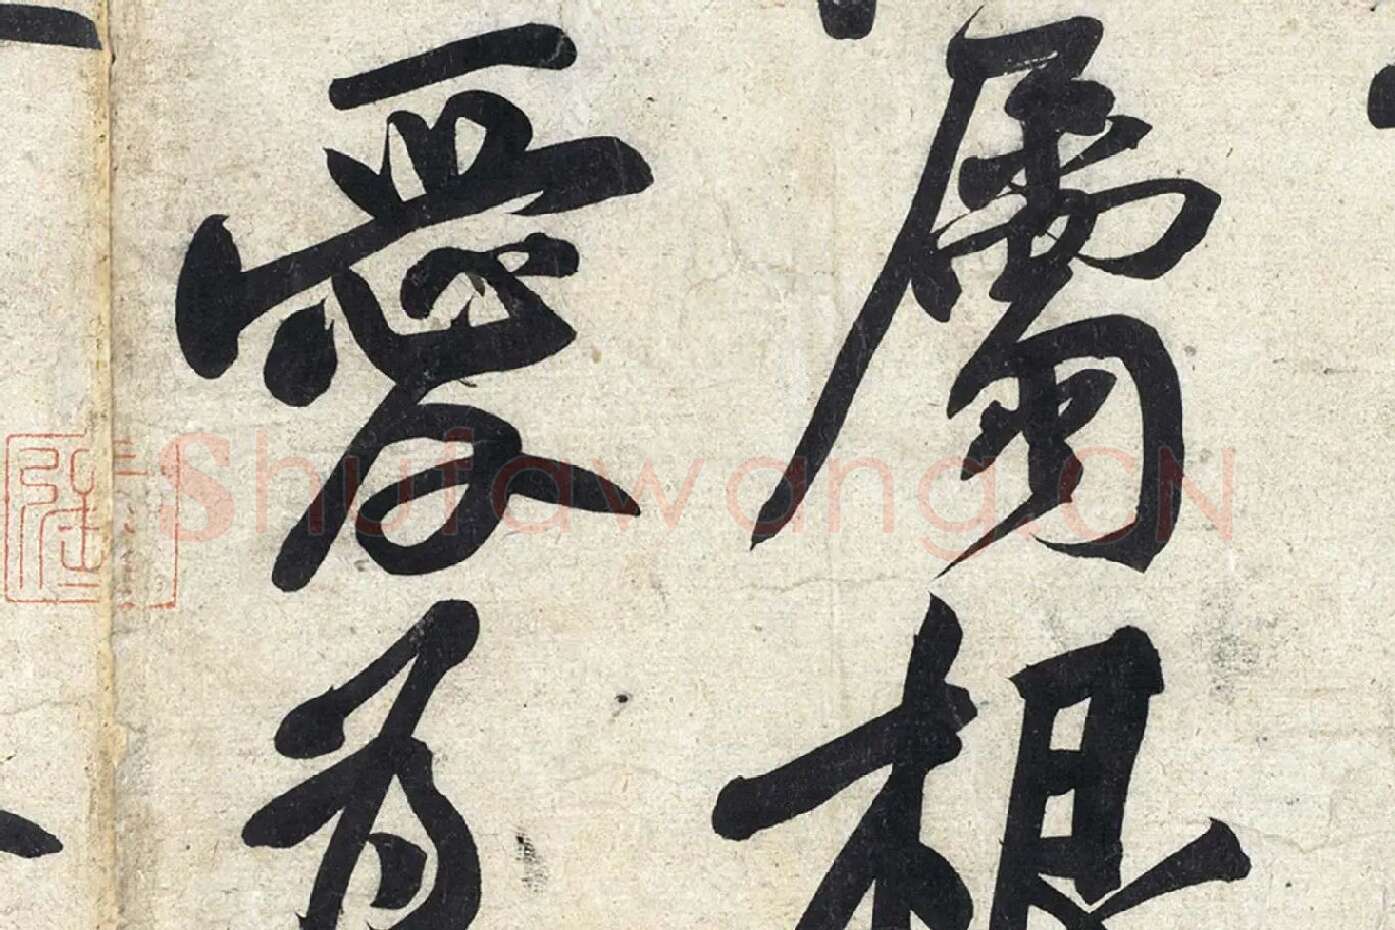 屬根
愛為
Shufawang.CN